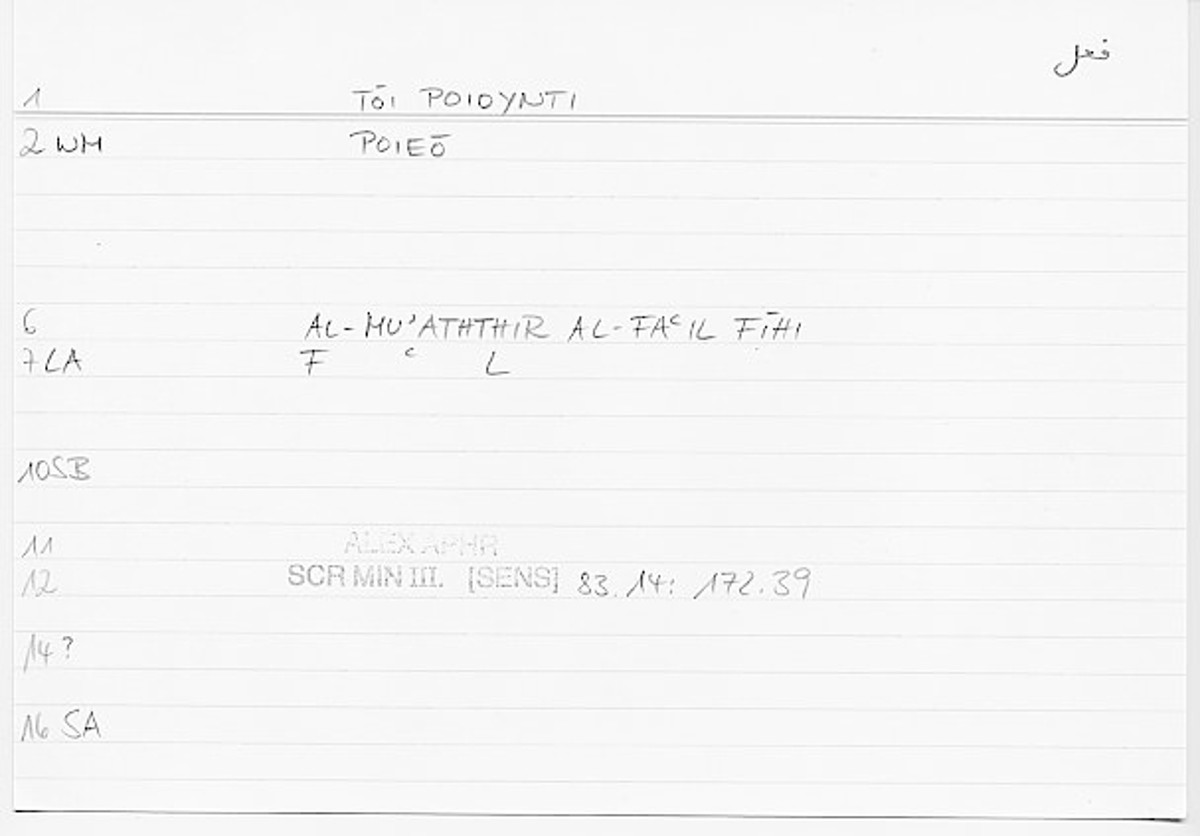 فعل
1 TŌI POIOYNTI
2 WM POIEŌ
6 AL-MU'ATHTHIR AL-FAᶜIL FĪHI
7 LA F ᶜ L
10 SB
11 ALEX APHR
12 SCR MIN III. [SENS] 83.14: 172.39
14 ?
16 SA